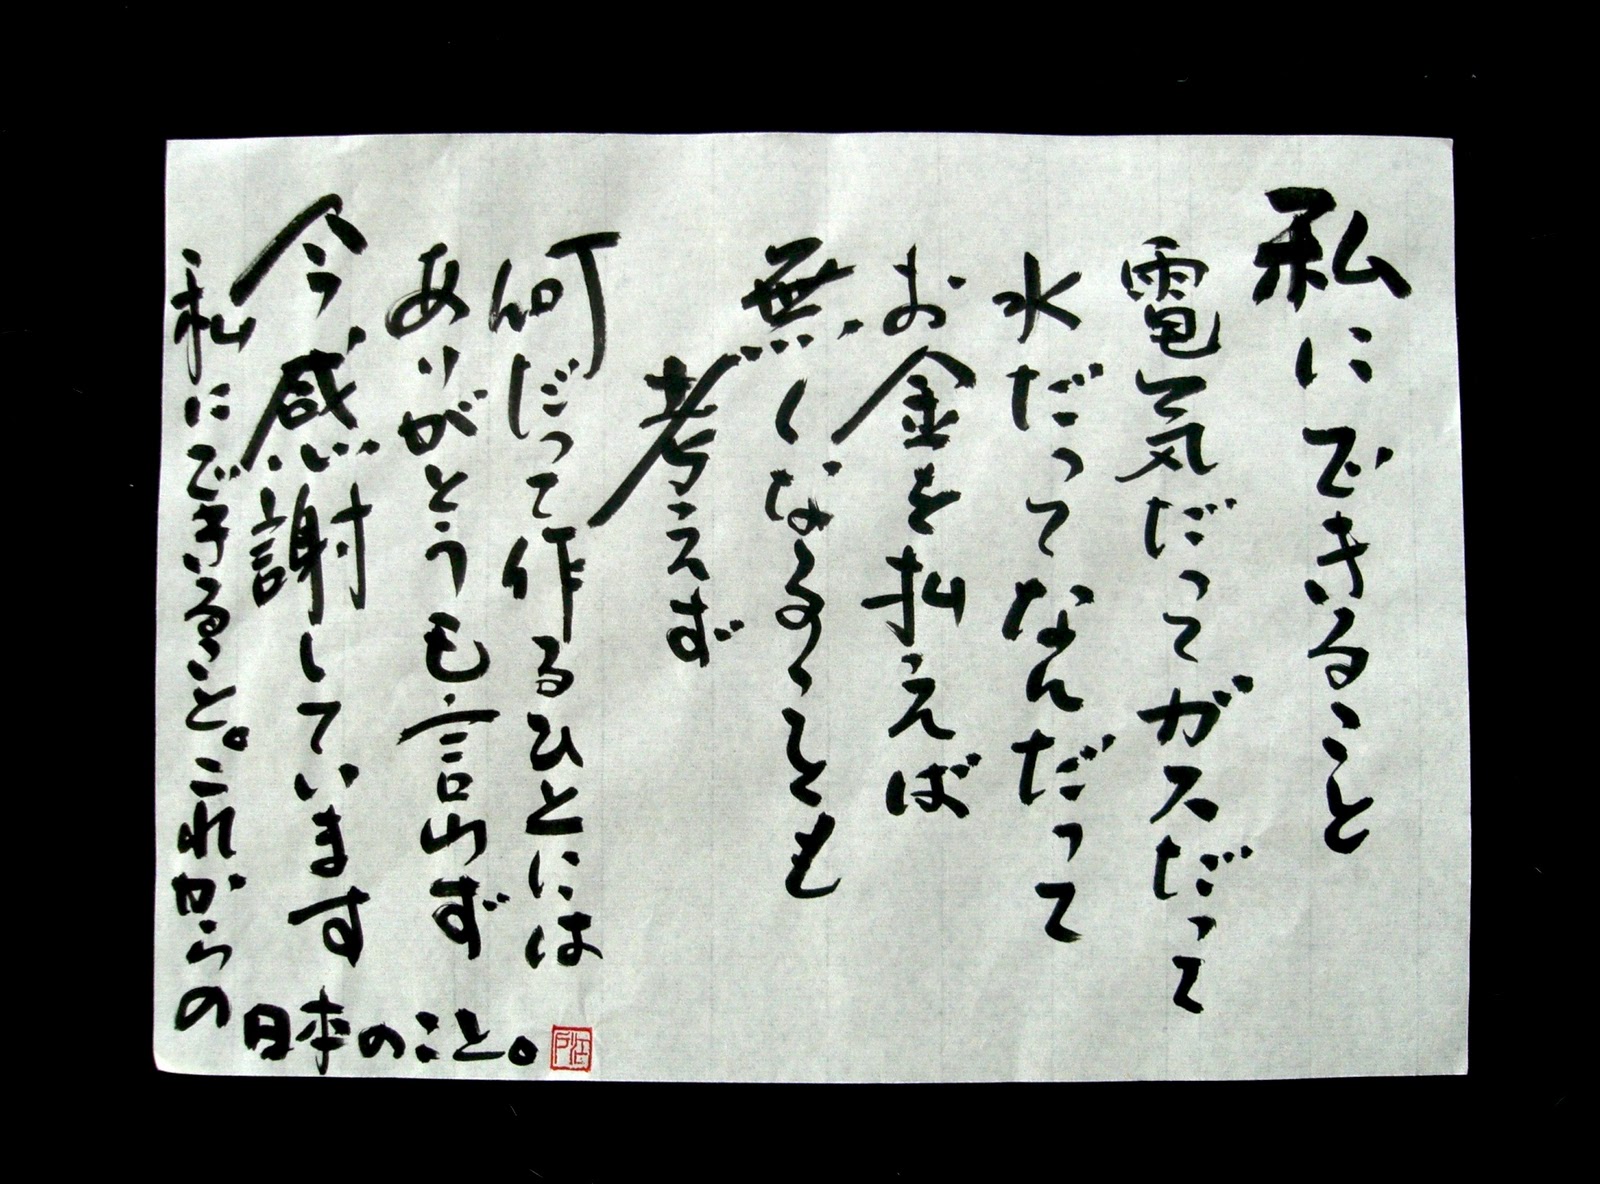 私にできること
電気だってガスだって
水だってなんだって
お金を払えば
無くなることも
考えず
何だって作るひとには
ありがとうも言わず
今感謝しています
私にできること。これからの
日本のこと。